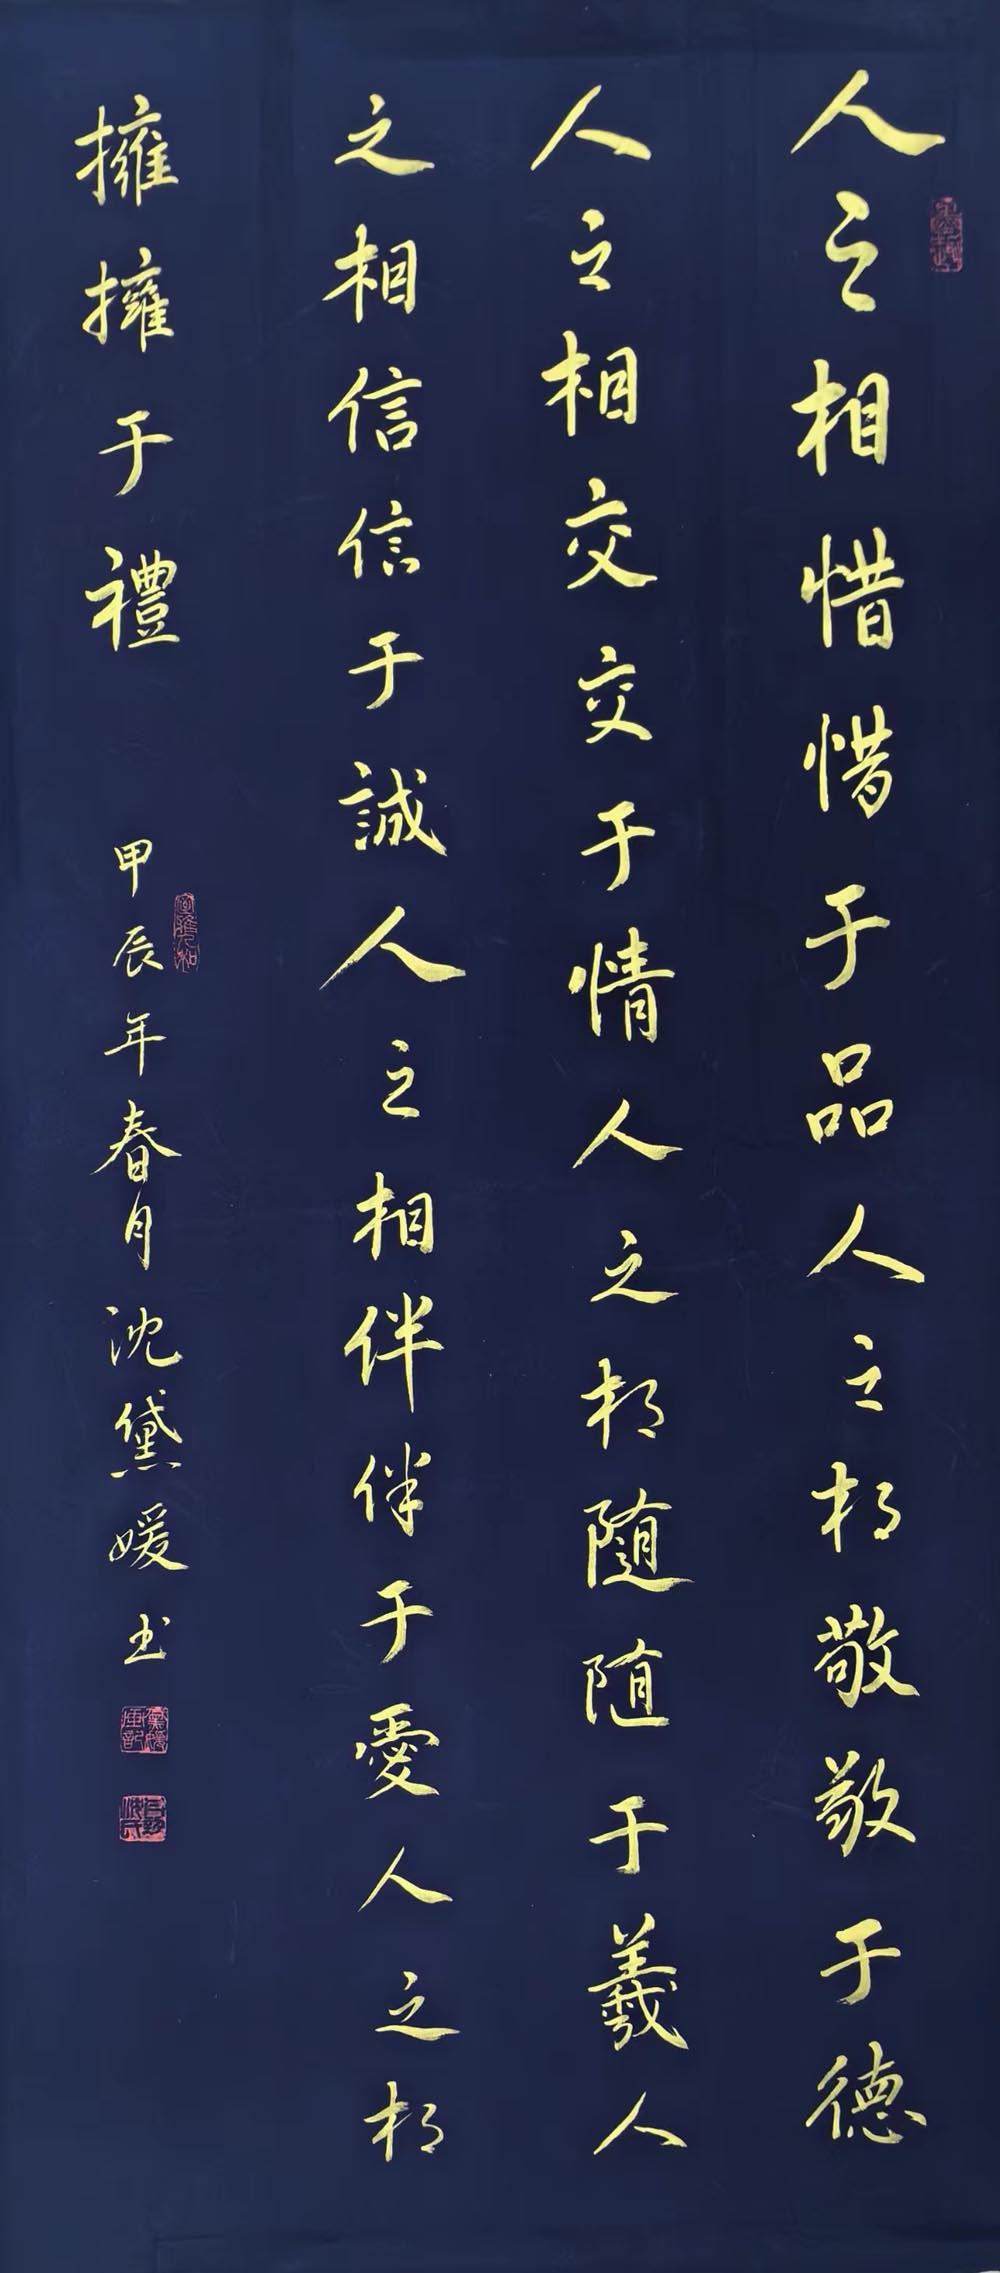 人之相惜惜于品人之相敬敬于德
人之相交交于情人之相随随于義人
之相信信于誠人之相伴伴于愛人之相
擁擁于禮
甲辰年春月沈黛媛书